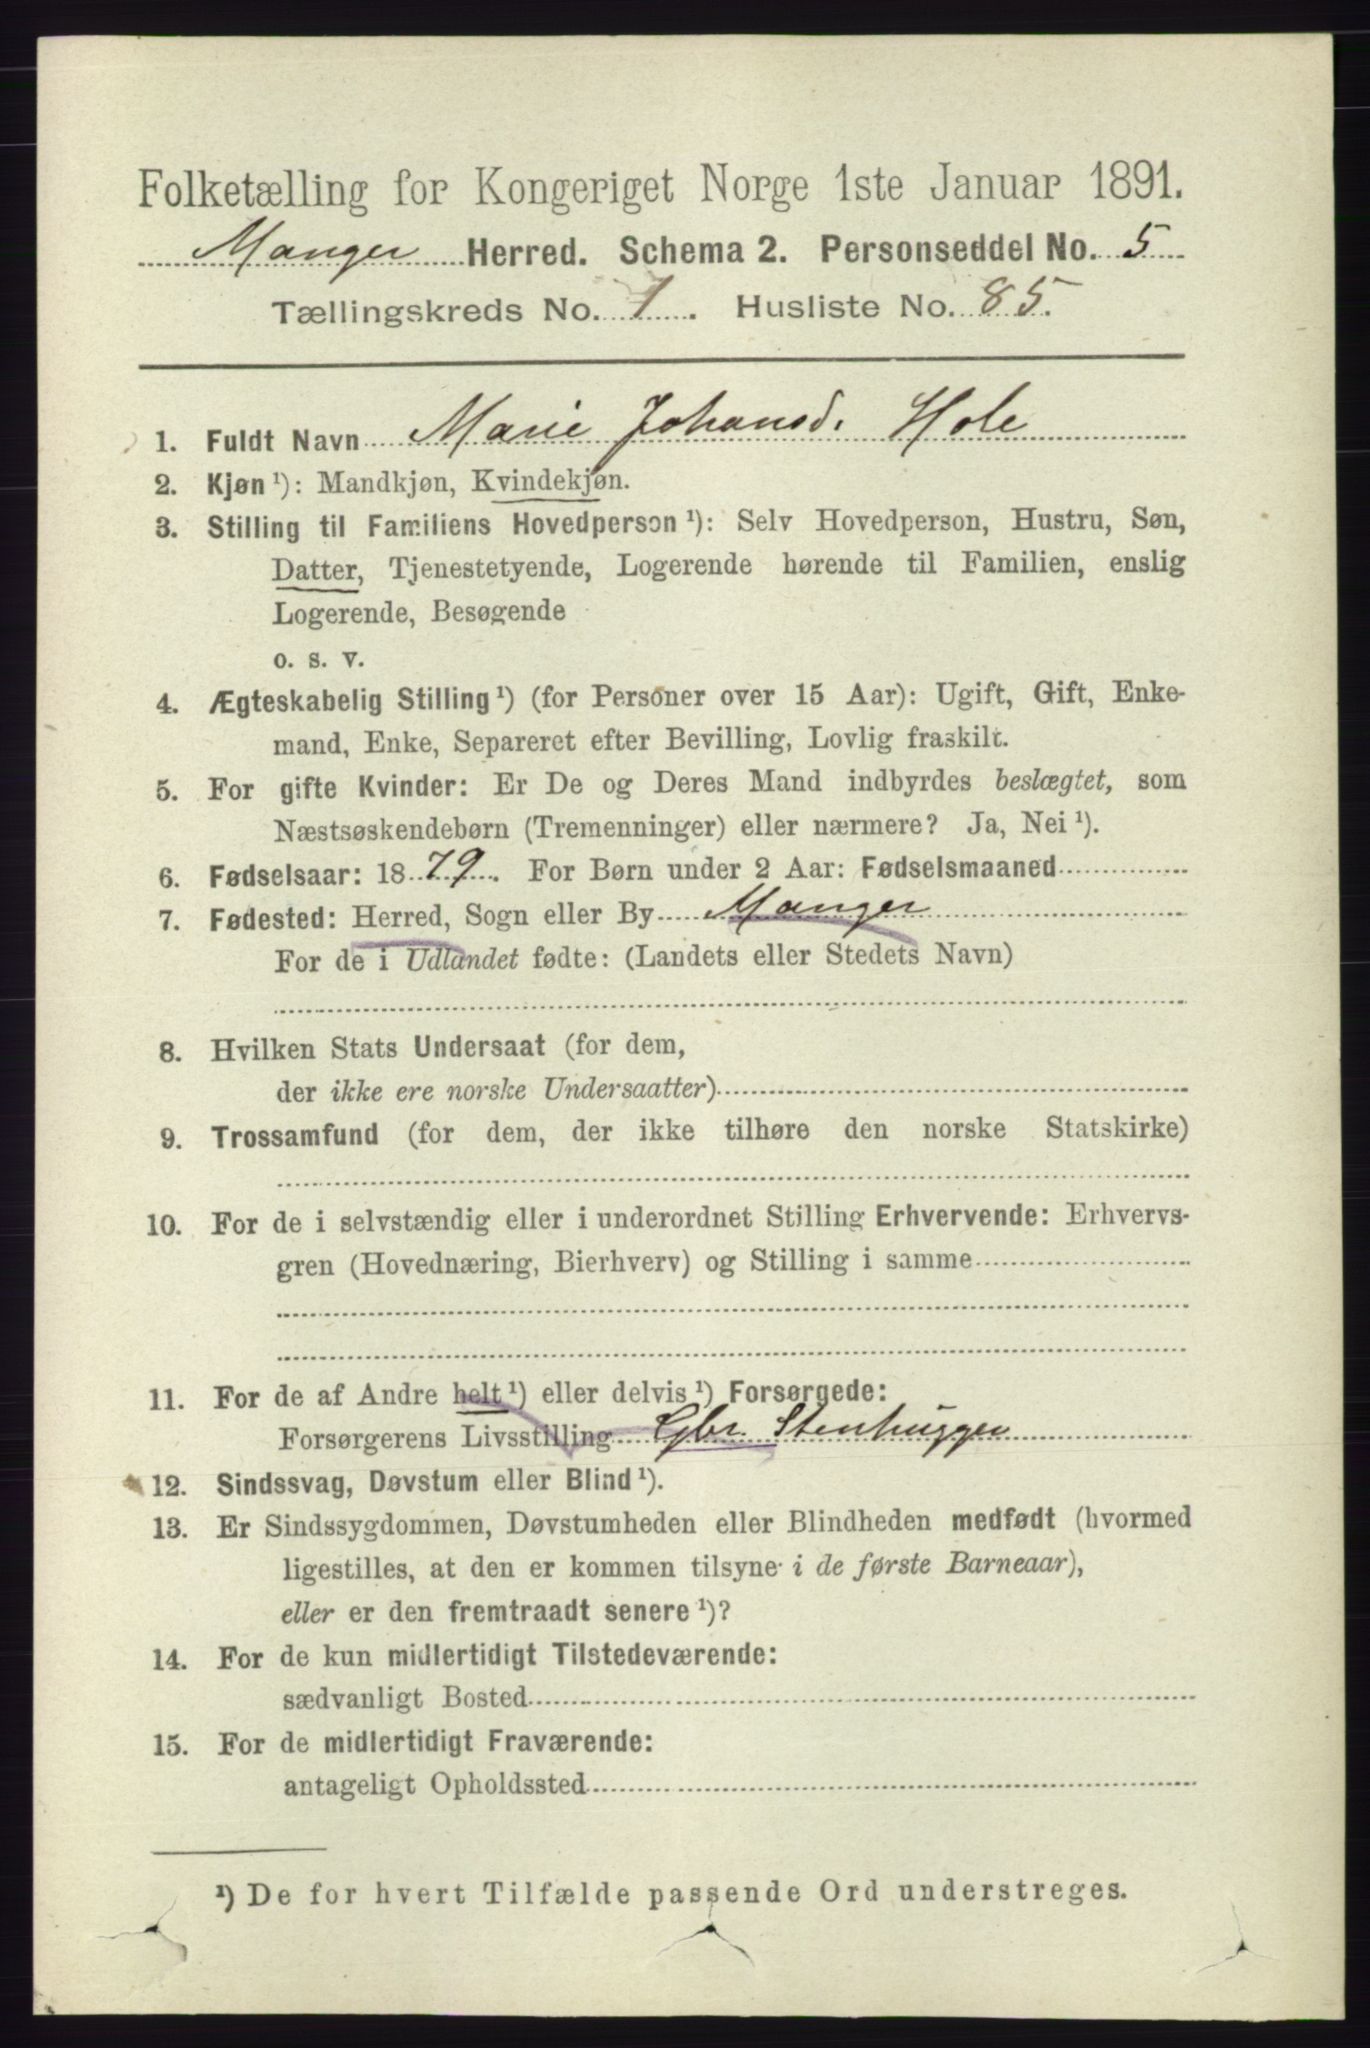 Folketælling for Kongeriget Norge 1ste Januar 1891.
Manger Herred. Schema 2. Personseddel No. 5
Tællingskreds No. 1. Husliste No. 85.
1. Fuldt Navn Marie Johansd. Hole
2. Kjøn ¹): Mandkjøn, Kvindekjøn.
3. Stilling til Familiens Hovedperson ¹): Selv Hovedperson, Hustru, Søn,
Datter, Tjenestetyende, Logerende hørende til Familien, enslig
Logerende, Besøgende
o. s. v.
4. Ægteskabelig Stilling ¹) (for Personer over 15 Aar): Ugift, Gift, Enke-
mand, Enke, Separeret efter Bevilling, Lovlig fraskilt.
5. For gifte Kvinder: Er De og Deres Mand indbyrdes beslægtet, som
Næstsøskendebørn (Tremenninger) eller nærmere? Ja, Nei ¹).
6. Fødselsaar: 1879. For Børn under 2 Aar: Fødselsmaaned
7. Fødested: Herred, Sogn eller By Manger
For de i Udlandet fødte: (Landets eller Stedets Navn)
8. Hvilken Stats Undersaat (for dem,
der ikke ere norske Undersaatter)
9. Trossamfund (for dem, der ikke tilhøre den norske Statskirke)
10. For de i selvstændig eller i underordnet Stilling Erhvervende: Erhvervs-
gren (Hovednæring, Bierhverv) og Stilling i samme
11. For de af Andre helt ¹) eller delvis ¹) Forsørgede:
Forsørgerens Livsstilling Gbr. Stenhugger
12. Sindssvag, Døvstum eller Blind ¹).
13. Er Sindssygdommen, Døvstumheden eller Blindheden medfødt (hvormed
ligestilles, at den er kommen tilsyne i de første Barneaar),
eller er den fremtraadt senere ¹)?
14. For de kun midlertidigt Tilstedeværende:
sædvanligt Bosted
15. For de midlertidigt Fraværende:
antageligt Opholdssted
¹) De for hvert Tilfælde passende Ord understreges.